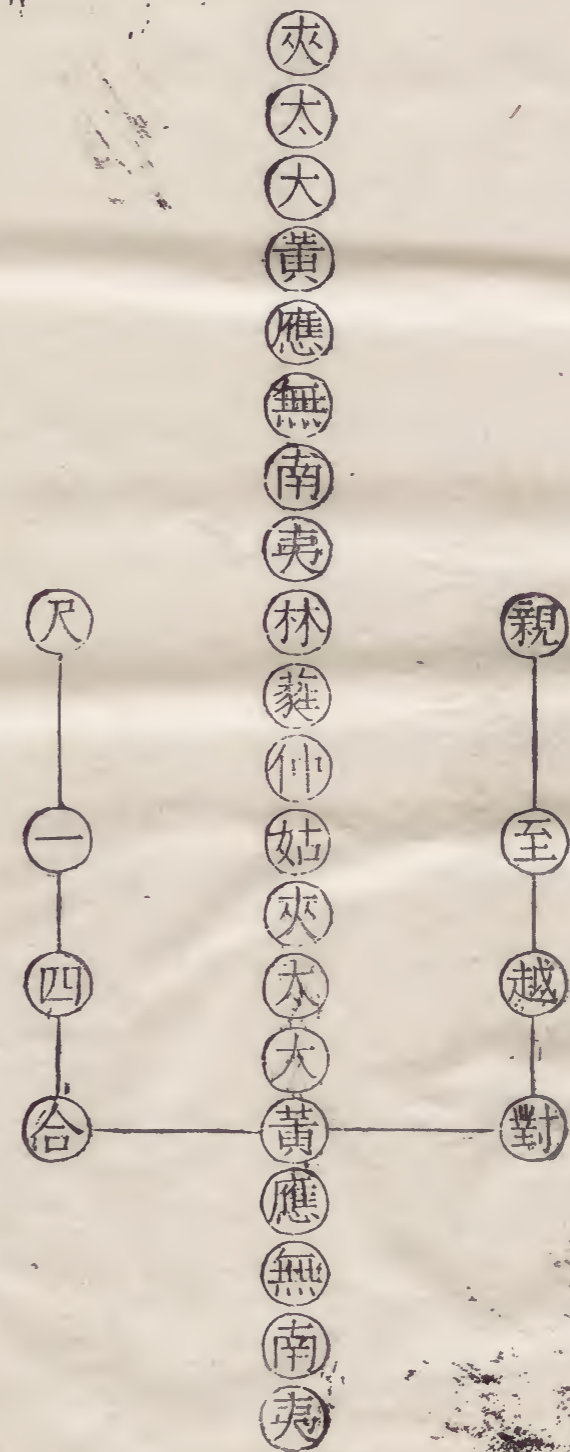 親至越對
夾太大黃應無南夷林蕤仲姑夾太大黃應無南夷
尺一四合